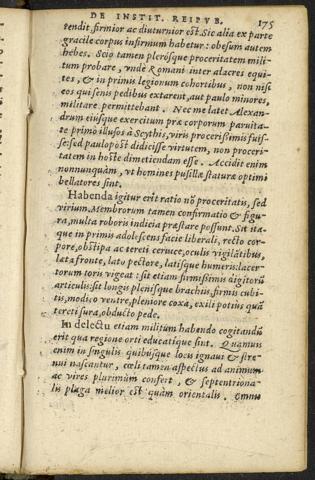 DE INSTIT. REIPVB. 175
tendit, firmior ac diuturnior est. Sic alia ex parte
gracile corpus infirmum habetur: obesum autem
hebes. Scio tamen plerosque proceritatem mili-
tum probare, vnde Romani inter alacres equi-
tes, & in primis legionum cohortibus, non nisi
eos qui senis pedibus extarent, aut paulo minores,
militare permittebant. Nec me latet Alexan-
drum eiusque exercitum præ corporum paruita-
te primò illusos à Scythis, viris procerissimis fuis-
se: sed paulopost didicisse virtutem, non proceri-
tatem in hoste dimetiendam esse. Accidit enim
nonnunquàm, vt homines pusillæ staturæ optimi
bellatores sint.
Habenda igitur erit ratio nō proceritatis, sed
virium. Membrorum tamen confirmatio & figu-
ra, multa roboris indicia præstare possunt. Sit ita-
que in primis adolescens facie liberali, recto cor-
pore, obstipa ac tereti ceruce, oculis vigilātibus,
lata fronte, lato pectore, latisque humeris: lacer-
torum toris vigeat: sit etiam firmissimis digitorū
articulis: sit longis plenisque brachiis, firmis cubi-
tis, modico ventre, pleniore coxa, exili potius quā
tereti sura, obducto pede.
In delectu etiam militum habendo cogitandū
erit qua regione orti educatique sint. Quamuis
enim in singulis quibusque locis ignaui & stre-
nui nascantur, cœli tamen aspectus ad animum
ac vires plurimùm confert, & septentriona-
lis plaga melior est quàm orientalis. Omnis